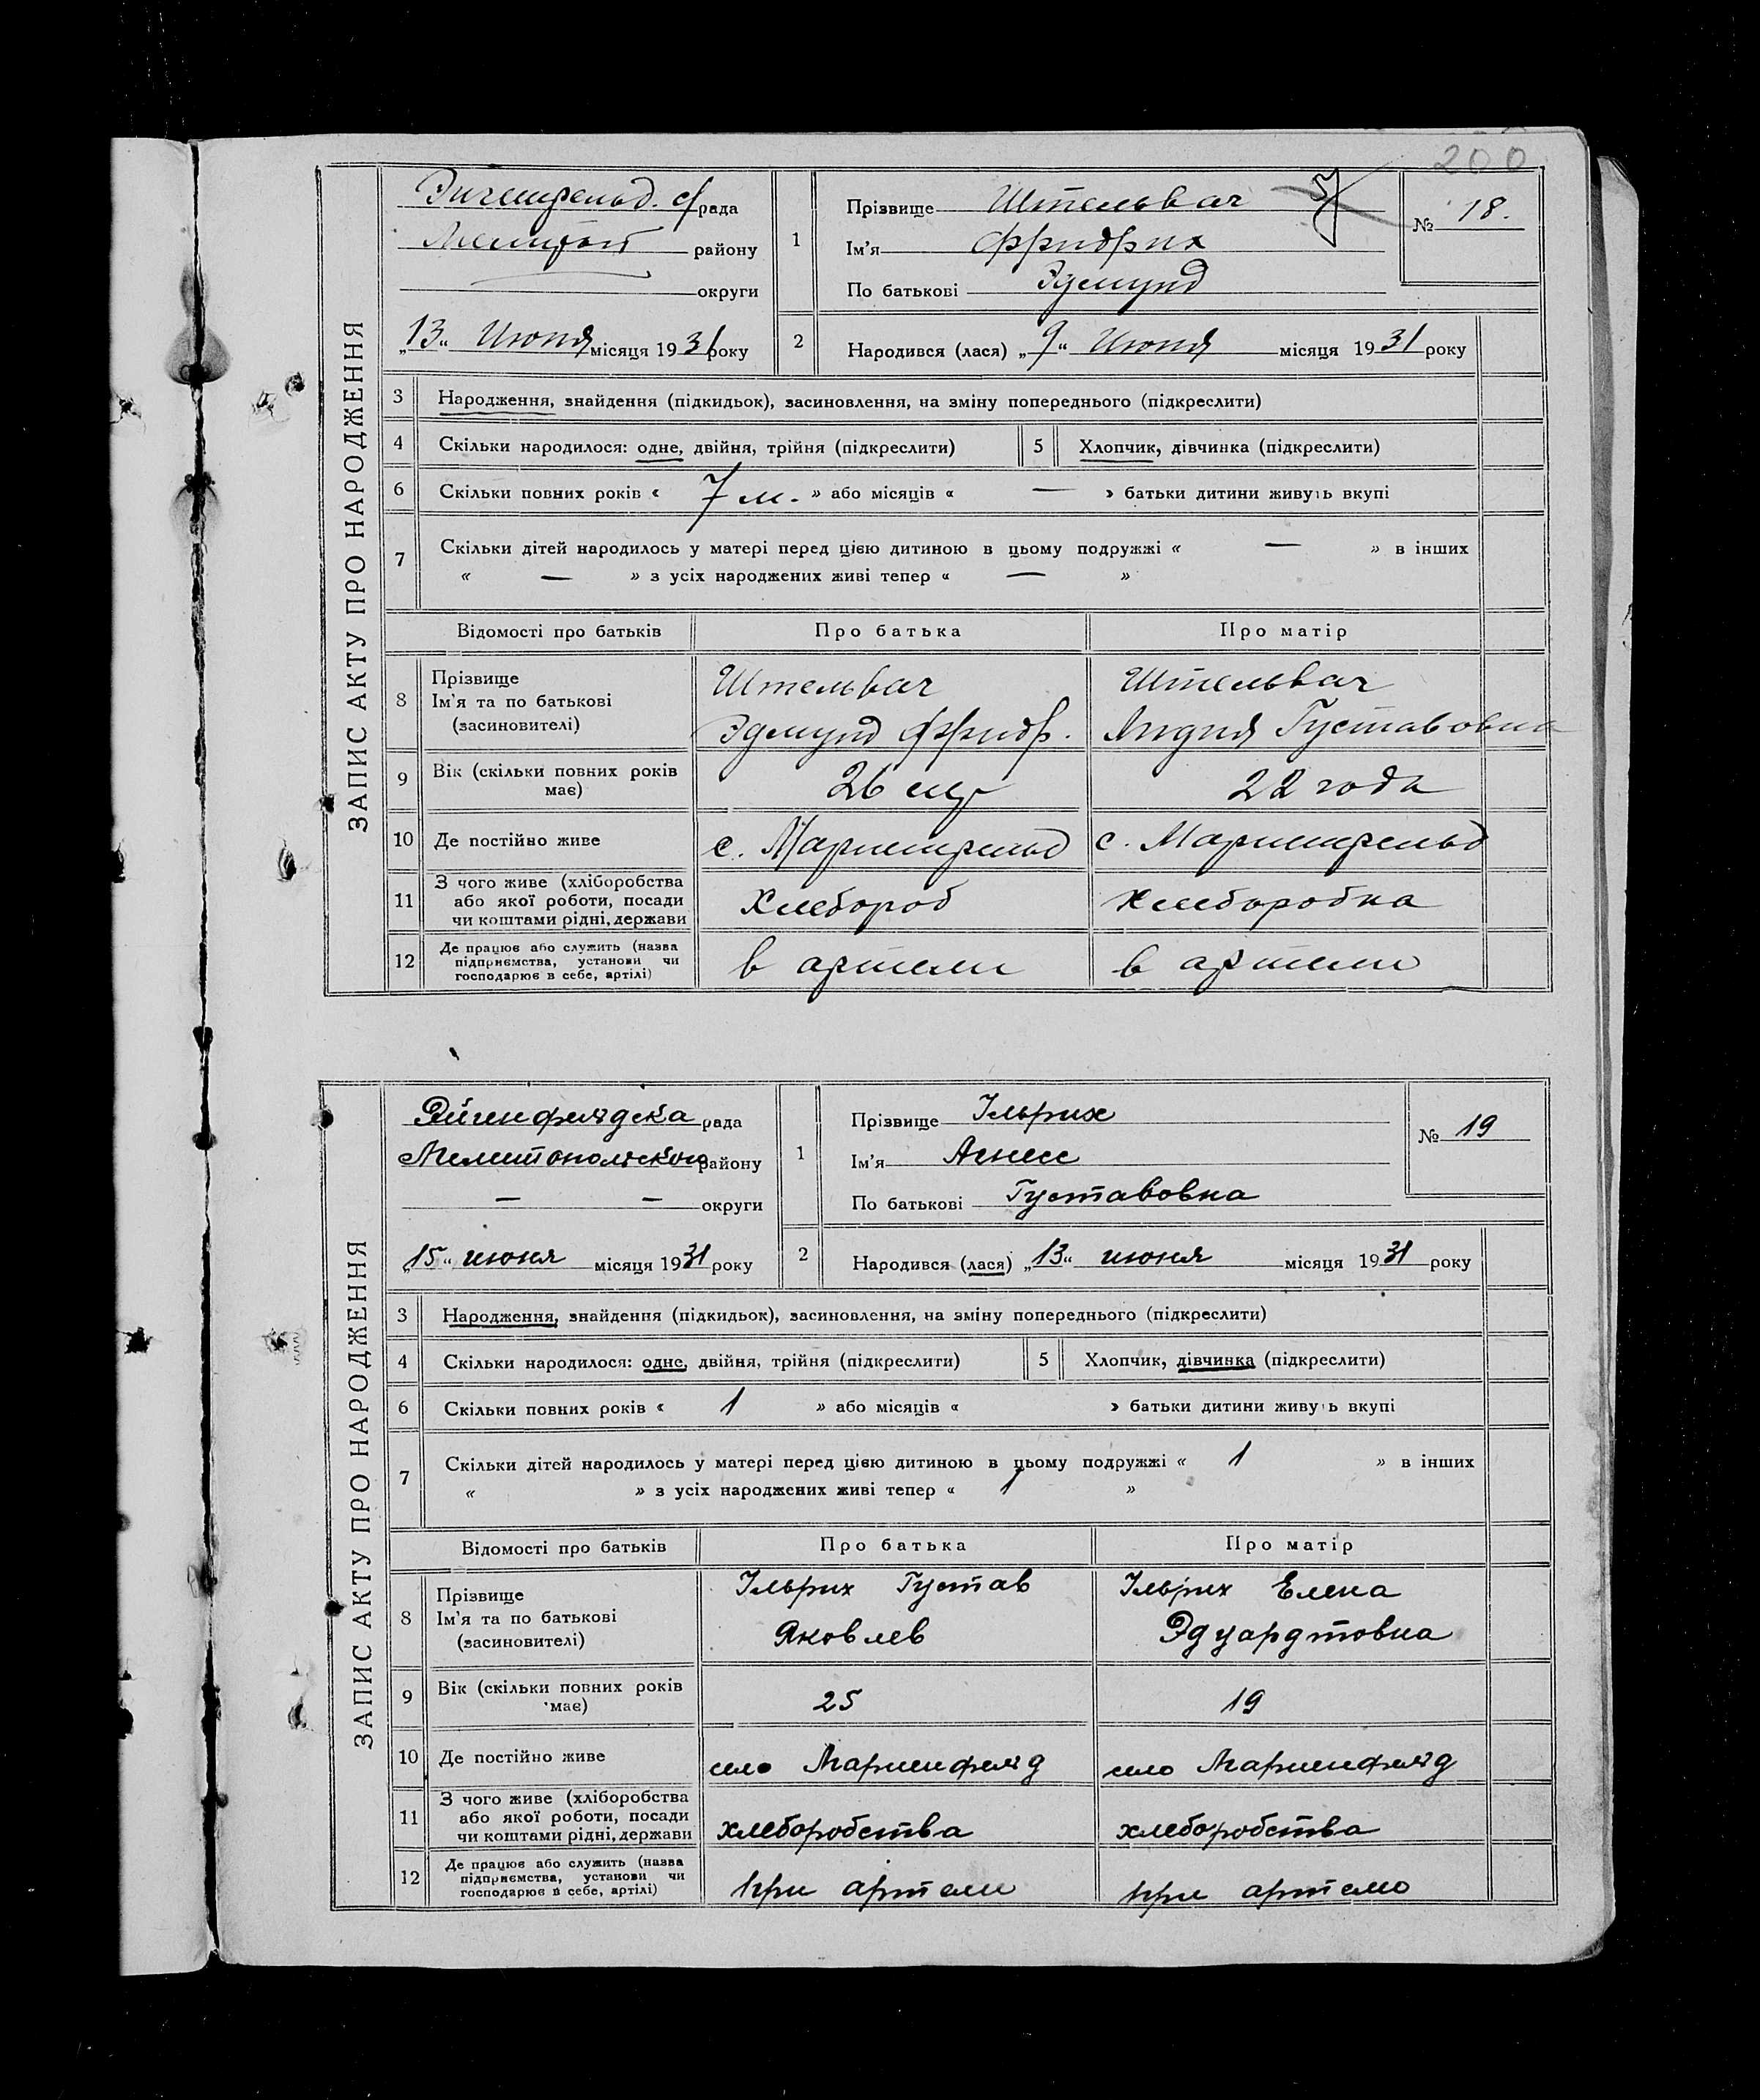 200
ЗАПИС АКТУ ПРО НАРОДЖЕННЯ
рада
району
округи
„13“ Июня місяця 1931 року
1
Прізвище Штельвах
Ім'я Фридрих
По батькові Эдмунд
№ 18.
2
Народився (лася) „9“ Июня місяця 1931 року
3 Народження, знайдення (підкидьок), засиновлення, на зміну попереднього (підкреслити)
4 Скільки народилося: одне, двійня, трійня (підкреслити)
5 Хлопчик, дівчинка (підкреслити)
6 Скільки повних років « 7 м. » або місяців « — » батьки дитини живуть вкупі
7 Скільки дітей народилось у матері перед цією дитиною в цьому подружжі « — » в інших
« — » з усіх народжених живі тепер « — »
Відомості про батьків Про батька Про матір
8 Прізвище Ім'я та по батькові (засновителі)
Штельвах Эдмунд Фридр.
Штельвах Лидия Густавовна
9 Вік (скільки повних років має) 26 22 года
10 Де постійно живе с. Мариенфельд с. Мариенфельд
11 З чого живе (хліборобства або якої роботи, посади чи коштами рідні, держави Хлебороб Хлеборобка
12 Де працює або служить (назва підприємства, установи чи господарює в себе, артілі) в артели в артели
ЗАПИС АКТУ ПРО НАРОДЖЕННЯ
Эйгенфельдска рада
Мелитопольского району
— — округи
„15“ июня місяця 1931 року
1
Прізвище Ільрих
Ім'я Агнесс
По батькові Густавовна
№ 19
2
Народився (лася) „13“ июня місяця 1931 року
3 Народження, знайдення (підкидьок), засиновлення, на зміну попереднього (підкреслити)
4 Скільки народилося: одне, двійня, трійня (підкреслити)
5 Хлопчик, дівчинка (підкреслити)
6 Скільки повних років « 1 » або місяців « » батьки дитини живуть вкупі
7 Скільки дітей народилось у матері перед цією дитиною в цьому подружжі « 1 » в інших
« » з усіх народжених живі тепер « 1 »
Відомості про батьків Про батька Про матір
8 Прізвище Ім'я та по батькові (засиновителі)
Ільрих Густав Яковлев
Ільрих Елена Эдуардтовна
9 Вік (скільки повних років має) 25 19
10 Де постійно живе село Мариенфельд село Мариенфельд
11 З чого живе (хліборобства або якої роботи, посади чи коштами рідні, держави хлеборобства хлеборобства
12 Де працює або служить (назва підприємства, установи чи господарює в себе, артілі) при артели при артело